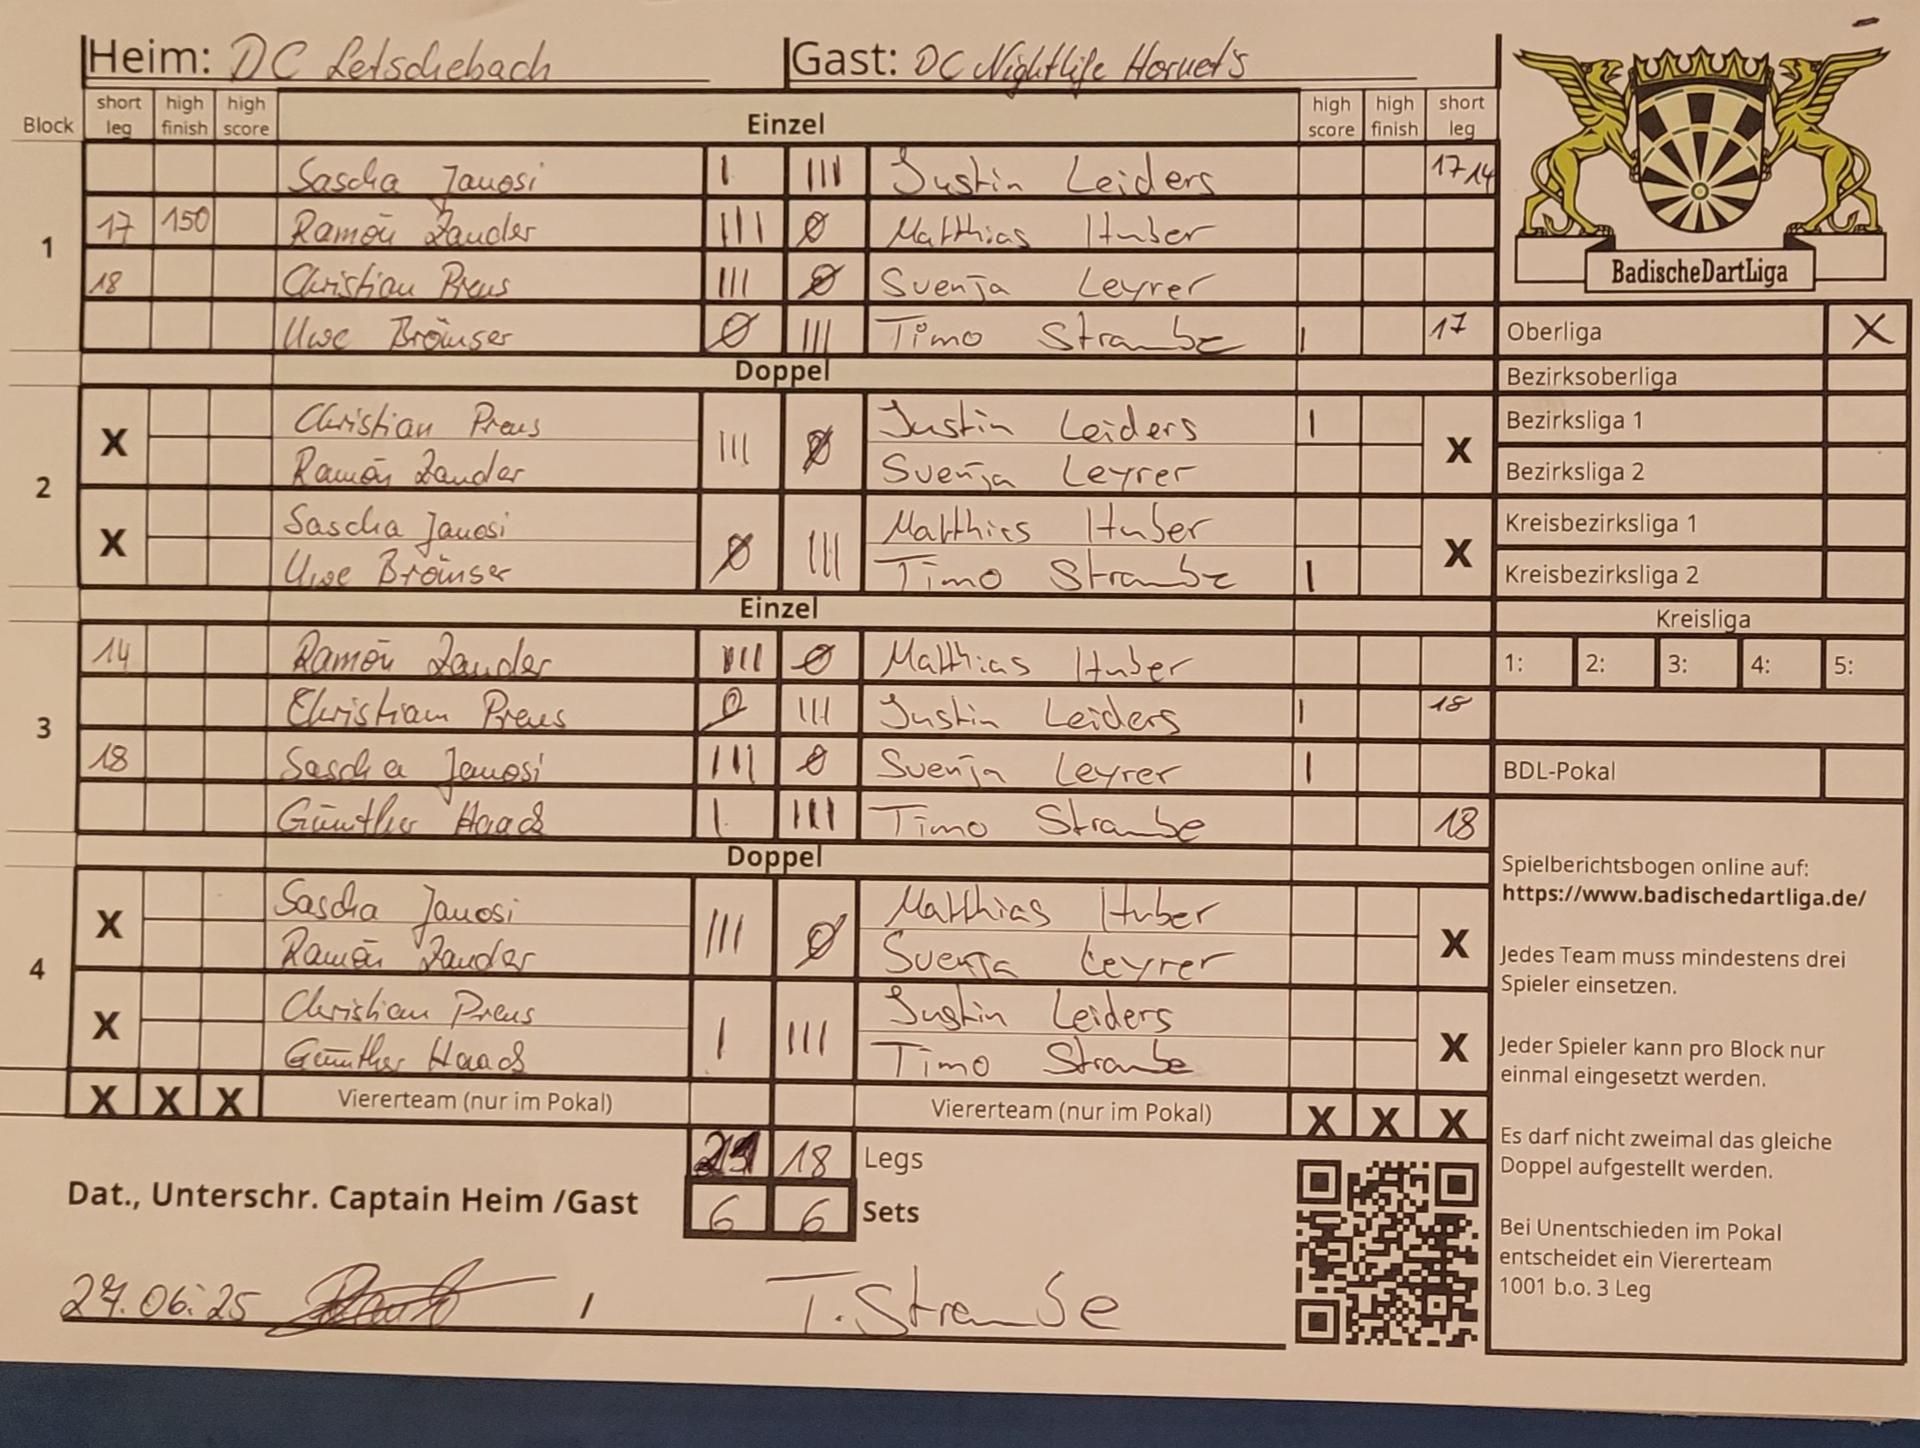 Heim: DC Letschebach Gast: DC Nightlife Hornet's
Block short leg high finish high score Einzel high score high finish short leg
Sascha Janosi I III Justin Leiders 17 14
1 17 150 Ramón Zander III 0 Matthias Huber
18 Christian Preus III 0 Svenja Leyrer
Uwe Brömser 0 III Timo Straube I 17
Doppel
2
X Christian Preus III 0 Justin Leiders I X
Ramón Zander Svenja Leyrer
X Sascha Janosi 0 III Matthias Huber X
Uwe Brömser Timo Straube I
Einzel
3
14 Ramón Zander III 0 Matthias Huber
Christian Preus 0 III Justin Leiders I 18
18 Sascha Janosi III 0 Svenja Leyrer I
Günther Haack I III Timo Straube 18
Doppel
4
X Sascha Janosi III 0 Matthias Huber X
Ramón Zander Svenja Leyrer
X Christian Preus I III Justin Leiders X
Günther Haack Timo Straube
X X X Viererteam (nur im Pokal) Viererteam (nur im Pokal) X X X
21 18 Legs
Dat., Unterschr. Captain Heim /Gast 6 6 Sets
27.06.25 / T. Straube
BadischeDartLiga
Oberliga X
Bezirksoberliga
Bezirksliga 1
Bezirksliga 2
Kreisbezirksliga 1
Kreisbezirksliga 2
Kreisliga
1: 2: 3: 4: 5:
BDL-Pokal
Spielberichtsbogen online auf:
https://www.badischedartliga.de/
Jedes Team muss mindestens drei
Spieler einsetzen.
Jeder Spieler kann pro Block nur
einmal eingesetzt werden.
Es darf nicht zweimal das gleiche
Doppel aufgestellt werden.
Bei Unentschieden im Pokal
entscheidet ein Viererteam
1001 b.o. 3 Leg